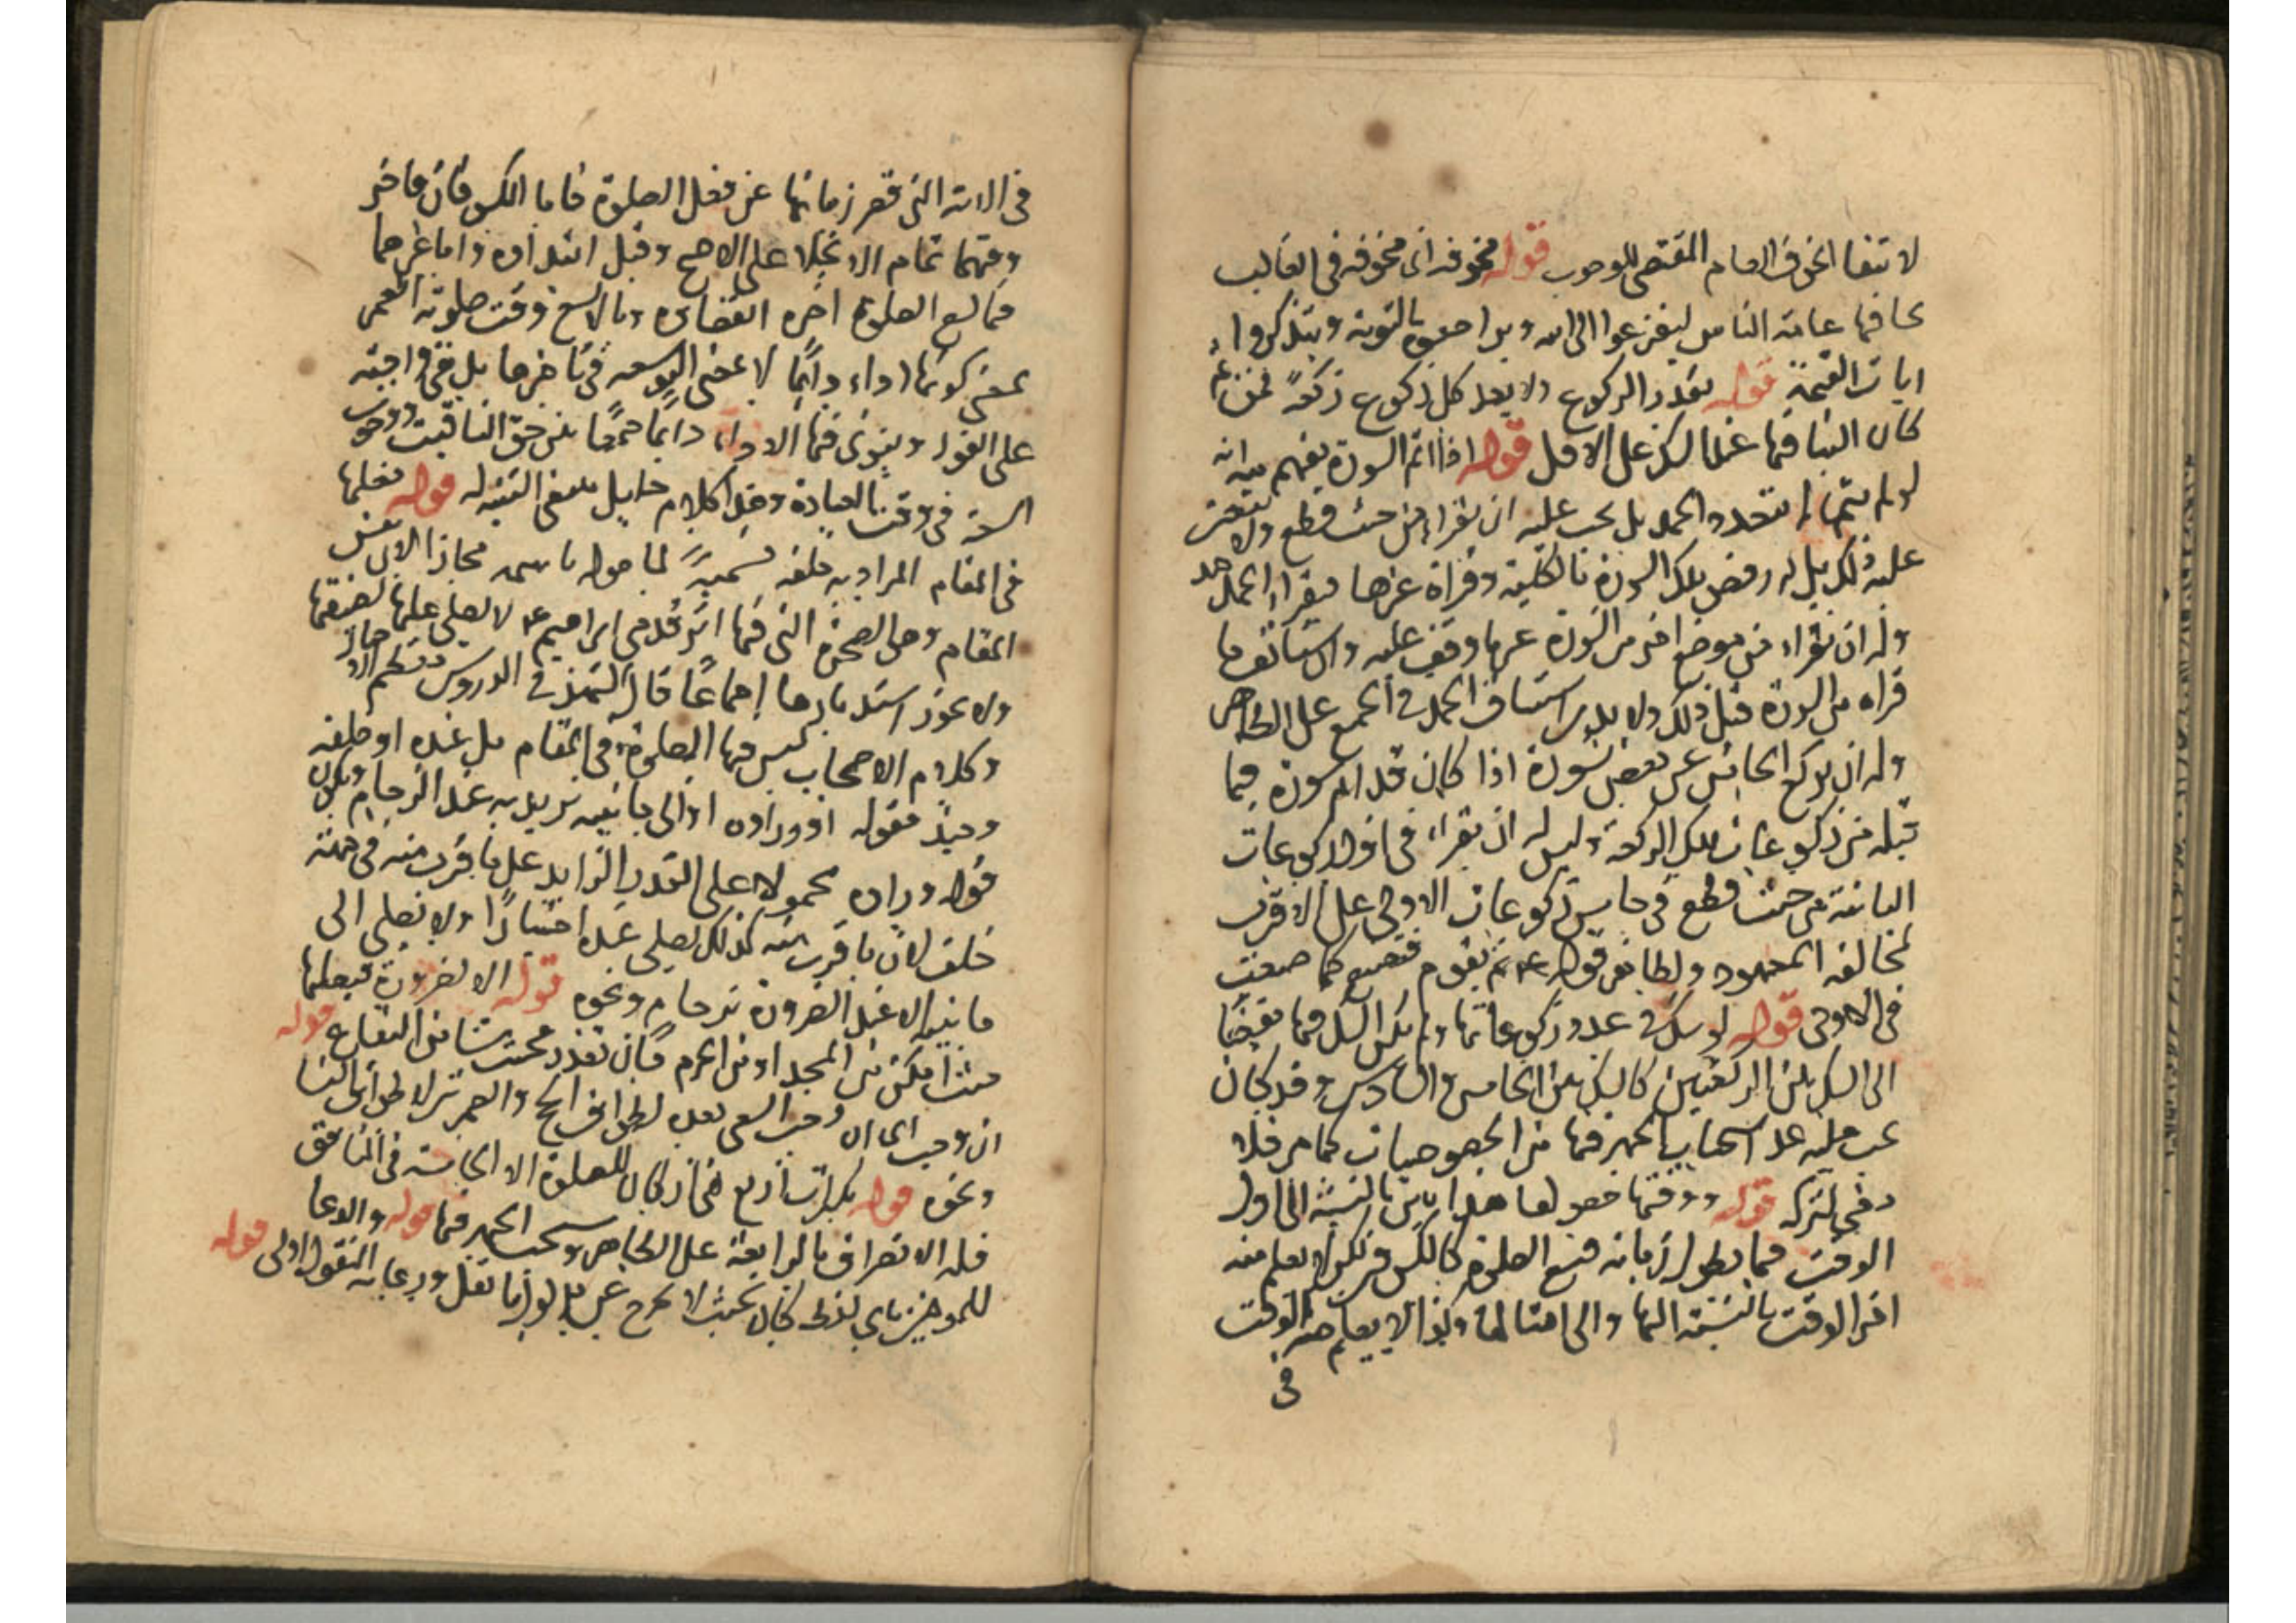 لانتفا الخوف العام المقتضى للوجوب قوله مخوفه اى مخوفه فى الغالب
يخافها عامة الناس ليفزعوا الى الله ويراجعوه بالتوبة ويتذكروا
ايات القيمة قوله بعدد الركوع ولا يعد كل ركوع ركعة فمن ثم
كان البنا فيها عند الشك على الاقل قوله اذا اتم السورة يفهم منه انه
لو لم يتمها لم يتعدد الحمد بل يجب عليه ان يقراء من حيث قطع ولا يتعين
عليه ذلك بل له رفض تلك السورة بالكلية وقراة غيرها فيقراء الحمد
وله ان يقراء من موضع اخر من السورة غير ما وقف عليه واستئناف ما
قراه من السورة قبل ذلك ولا بد من استئناف الحمد فى الجميع على الظاهر
وله ان يركع الخامس عن بعض سورة اذا كان قد اتم سورة فيما
قبله من ركوعات تلك الركعة وليس له ان يقراء فى اول ركوعات
الثانية من حيث قطع فى خامس ركوعات الاولى على الاقرب
لمخالفه المعهود ولظاهر قوله ع ثم تقوم فتصنع كما صنعت
فى الاولى قوله لو شك فى عدد ركوعاتها ولم يكن الشك فيها مفضيا
الى الشك بين الركعتين كالشك بين الخامس والسادس وقد كان
يجب عليه عد استحباب الجهر فيها من الخصوصيات كما مر فلا
وفى لتركه قوله ووقتها حصولها هذا بالنسبة الى اول
الوقت فيما يطول زمانه فيسع الصلوة كالكسوف لكن لا يعلم منه
اخر الوقت بالنسبة اليها والى امثالها وكذا لا يعلم منه الوقت
فى
فى الاية التى قصر زمانها عن فعل الصلوة فاما الكسوفان فاخر
وقتهما تمام الانجلا على الاصح وقيل ابتداوه واما غيرهما
فما يسع الصلوة اخره انقضاوه وما لا يسع وقت صلوته العمر
بمعنى كونها اداء دائما لا بمعنى التوسعه فى تاخيرها بل هى واجبة
على الفور وينوى فيها الاداء دائما جمعا بين حق التاقيت ووجوب
السعة فى وقت العبادة وهذا كلام خليل بمعنى التنبيه له قوله فعلها
فى المقام المراد به خلفه تسمية لما حوله باسمه مجازا لان نفس
المقام وهى الصخرة التى فيها اثر قدمى ابراهيم ع لا يصلى عليها لضيقها
ولا يجوز استدبارها اجماعا قال الشهيد فى الدروس
وكلام الاصحاب ليس فيها الصلوة فى المقام بل عنده او خلفه
وحينئذ فقوله او وراوه او الى جانبيه يريد به عند الزحام ويكون
قوله وراه محمولا على القدر الزايد على ما قرب منه فى جهة
خلف لان ما قرب منه كذلك يصلى عنده اختيارا ولا يصلى الى
جانبيه الا عند الضرورة كزحام ونحوه قوله الا لضرورة فيصلها
حيث امكن من المسجد او من الحرم فان تعذر فحيث شا من البقاع قوله
ان وجب اى ان وجب السعى بعده لطواف الحج والعمرة لا طواف النسا
ونحوه قوله تكبيرات اربع هى اركان للصلوة الا الخامسة فى المنافق
فله الانصراف بالرابعة على الظاهر ويستحب الجهر فيها قوله والدعا
للمومنين باى لفظ كان بحيث لا يخرج عن مدلوله وما نقل ورعاية المنقول اولى قوله